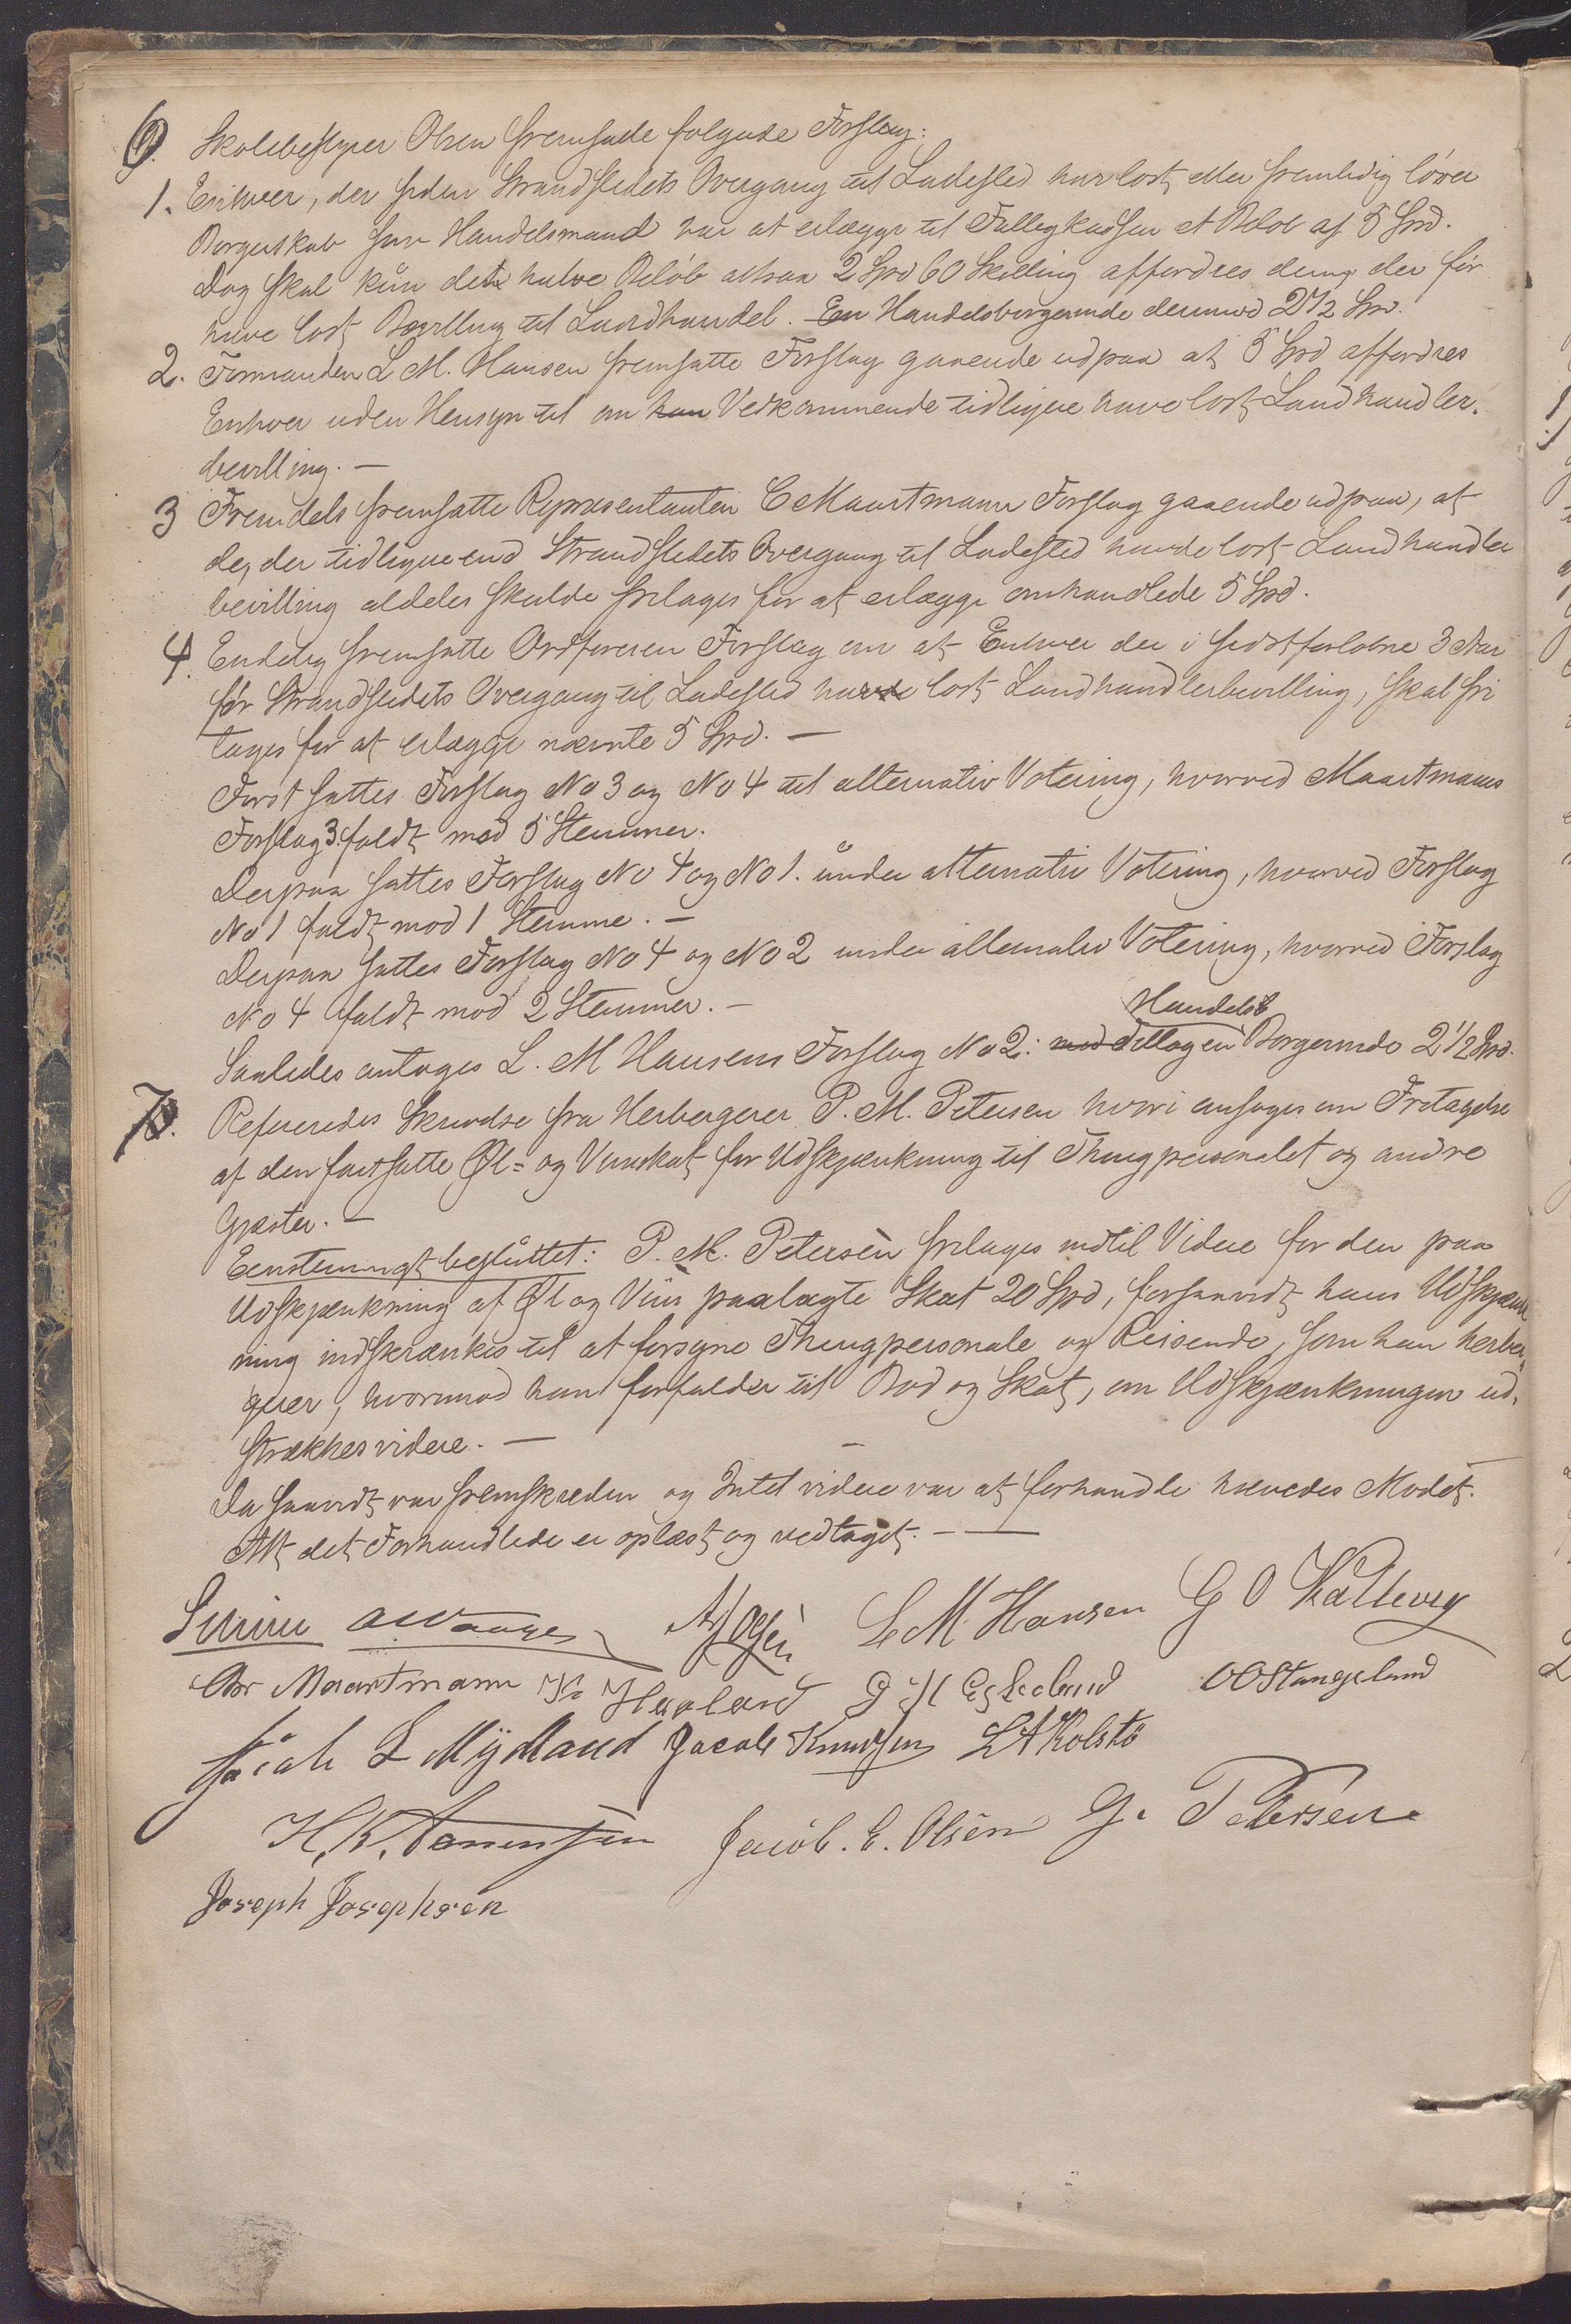 6). Skolebestyrer Olsen fremsatte følgende Forslag:
1. Enhver, der siden Strandstedets Overgang til Ladested har løst, eller fremtidig løser
Borgerskab som Handelsmand har at erlægge til Fattigkassen et Beløb af 5 Spd.
Dog skal kun det halve Beløb altsaa 2 Spd 60 Skilling affordres dem, der før
have løst Bevilling til Landhandel. En Handelsborgerinde derimod 2 1/2 Spd.
2. Formanden L M. Hansen fremsatte Forslag gaaende ud paa at 5 Spd affordres
Enhver uden Hensyn til om han Vedkommende tidligere have løst Landhandler-
bevilling. —
3 Fremdeles fremsatte Repræsentanten C Maartmann Forslag gaaende ud paa, at
de, der tidligere end Strandstedets Overgang til Ladested havde løst Landhandler
bevilling aldeles skulde fritages for at erlægge omhandlede 5 Spd.
4. Endelig fremsatte Ordføreren Forslag om at Enhver der i sidstforløbne 3 Aar
før Strandstedets Overgang til Ladested havde løst Landhandlerbevilling, skal fri
tages for at erlægge nævnte 5 Spd. —
Først sattes Forslag No 3 og No 4 til alternativ Votering, hvorved Maartmanns
Forslag 3. faldt mod 5 Stemmer.
Derpaa sattes Forslag No 4 og No 1. under alternativ Votering, hvorved Forslag
No 1 faldt mod 1 Stemme. —
Derpaa sattes Forslag No 4 og No 2 under alternativ Votering, hvorved Forslag
No 4 faldt mod 2 Stemmer. —
Handelsb
Saaledes antoges L. M Hansens Forslag No 2: med Tillæg en Borgerinde 2 1/2 Spd.
7). Refereredes Skrivelse fra Herbergerer P. M. Petersen hvori ansøges om Fritagelse
af den fastsatte Øl= og Vinskat for Udskjænkning til Thingpersonalet og andre
Gjæster. —
Eenstemmigt besluttet: P. M. Petersen fritages indtil Videre for den paa
Udskjænkning af Øl og Viin paalagte Skat 20 Spd, forsaavidt hans Udskjænk
ning indskrænkes til at forsyne Thingpersonale og Reisende, som han herber-
gerer, hvorimod han forfalder til Bod og Skat, om Udskjænkningen ud-
strækkes videre. —
Da saavidt var fremskreden og Intet videre var at forhandle hævedes Mødet.
Alt det Forhandlede er oplæst og vedtaget. — —
L M Hansen G O Kallevig
Chr Maartmann Haaland Eskeland OO Stangeland
Jacob L Mydland Jacob Knudsen L A Kolstø
H. K. Tønnensen Jacob. E. Olsen J. Petersen
Joseph Josephsen